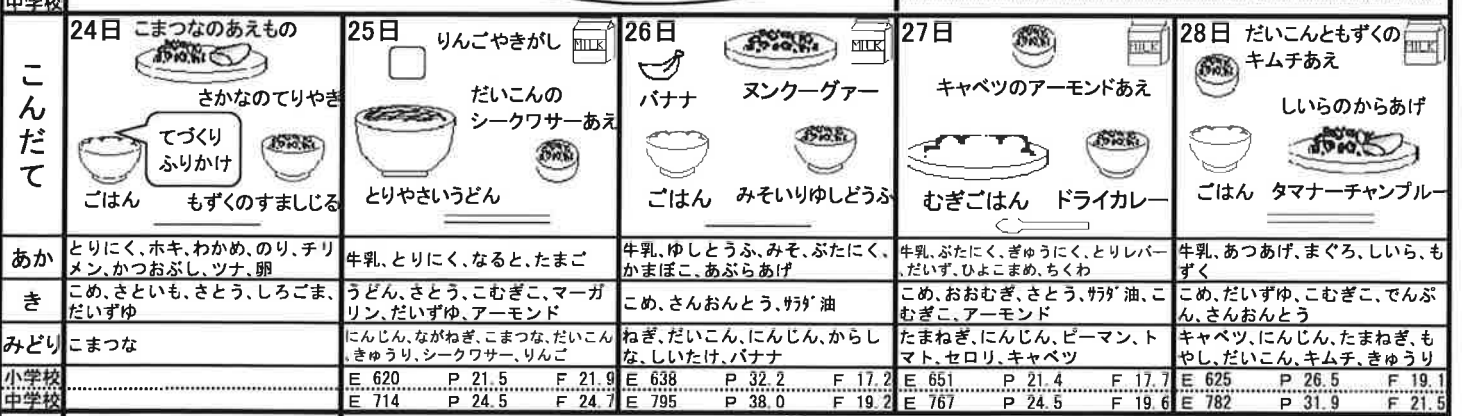 中学校
こんだて
24日 こまつなのあえもの
さかなのてりやき
てづくり
ふりかけ
ごはん もずくのすましじる
25日 りんごやきがし MILK
だいこんの
シークワサーあえ
とりやさいうどん
26日 MILK
バナナ ヌンクーグァー
ごはん みそいりゆしどうふ
27日 MILK
キャベツのアーモンドあえ
むぎごはん ドライカレー
28日 だいこんともずくの
キムチあえ
しいらのからあげ
ごはん タマナーチャンプルー
あか
とりにく、ホキ、わかめ、のり、チリ
メン、かつおぶし、ツナ、卵
牛乳、とりにく、なると、たまご
牛乳、ゆしとうふ、みそ、ぶたにく、
かまぼこ、あぶらあげ
牛乳、ぶたにく、ぎゅうにく、とりレバー
、だいず、ひよこまめ、ちくわ
牛乳、あつあげ、まぐろ、しいら、も
ずく
き
こめ、さといも、さとう、しろごま、
だいずゆ
うどん、さとう、こむぎこ、マーガ
リン、だいずゆ、アーモンド
こめ、さんおんとう、サラダ油
こめ、おおむぎ、さとう、サラダ油、こ
むぎこ、アーモンド
こめ、だいずゆ、こむぎこ、でんぷ
ん、さんおんとう
みどり
こまつな
にんじん、ながねぎ、こまつな、だいこん
、きゅうり、シークワサー、りんご
ねぎ、だいこん、にんじん、からし
な、しいたけ、バナナ
たまねぎ、にんじん、ピーマン、ト
マト、セロリ、キャベツ
キャベツ、にんじん、たまねぎ、も
やし、だいこん、キムチ、きゅうり
小学校
E 620 P 21.5 F 21.9
E 638 P 32.2 F 17.2
E 651 P 21.4 F 17.7
E 625 P 26.5 F 19.1
中学校
E 714 P 24.5 F 24.7
E 795 P 38.0 F 19.2
E 767 P 24.5 F 19.6
E 782 P 31.9 F 21.5